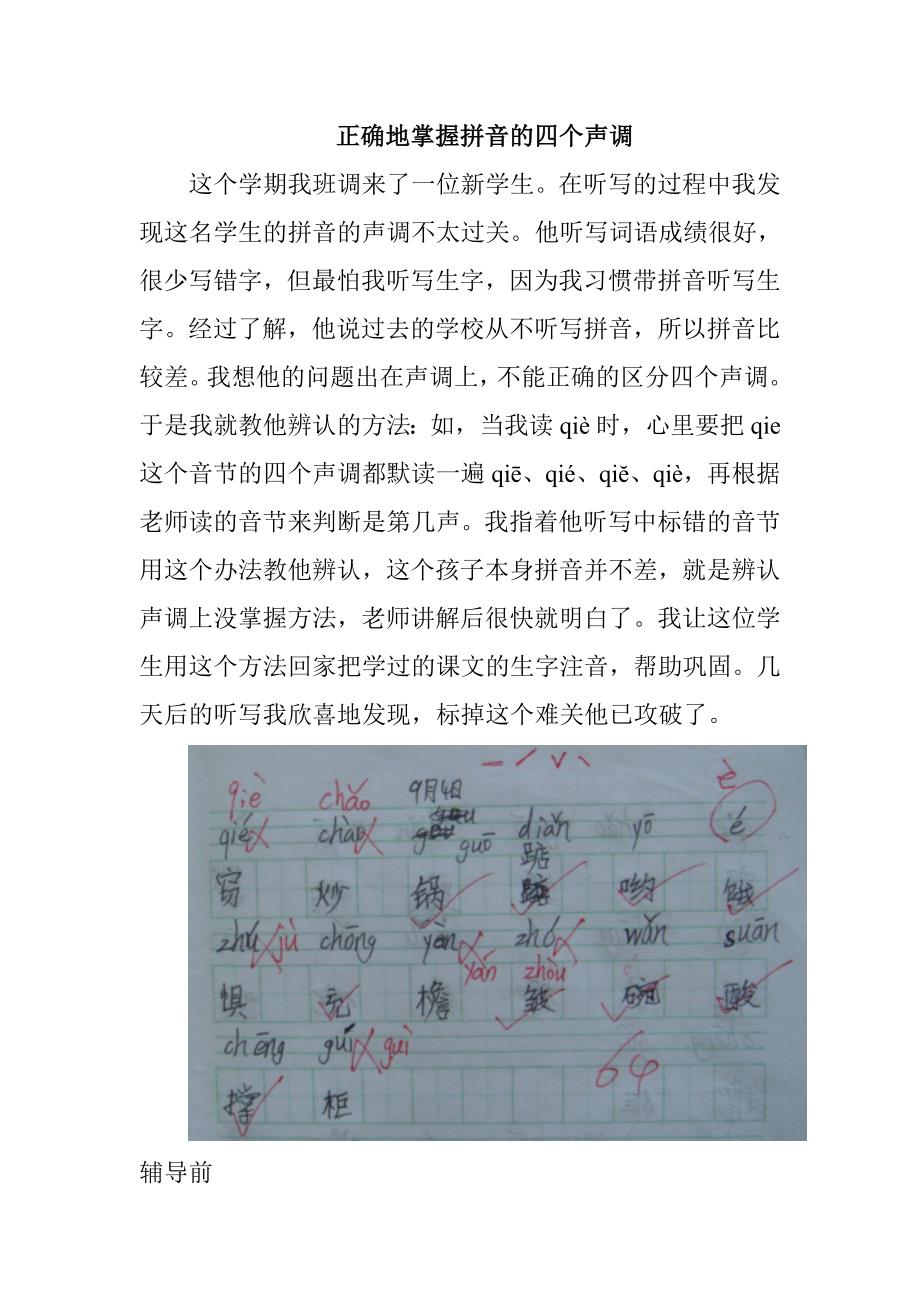 正确地掌握拼音的四个声调
这个学期我班调来了一位新学生。在听写的过程中我发
现这名学生的拼音的声调不太过关。他听写词语成绩很好，
很少写错字，但最怕我听写生字，因为我习惯带拼音听写生
字。经过了解，他说过去的学校从不听写拼音，所以拼音比
较差。我想他的问题出在声调上，不能正确的区分四个声调。
于是我就教他辨认的方法：如，当我读 qiè 时，心里要把 qie
这个音节的四个声调都默读一遍 qiē、qié、qiě、qiè，再根据
老师读的音节来判断是第几声。我指着他听写中标错的音节
用这个办法教他辨认，这个孩子本身拼音并不差，就是辨认
声调上没掌握方法，老师讲解后很快就明白了。我让这位学
生用这个方法回家把学过的课文的生字注音，帮助巩固。几
天后的听写我欣喜地发现，标掉这个难关他已攻破了。
qiè chǎo 9月4日 è
qié chào guō diǎn yō é
踮
窃 炒 锅 哟 饿
jù chōng wǎn suān
yán zhòu
惧 充 檐 皱 碗 酸
chēng guī guì 64
撑 柜
辅导前